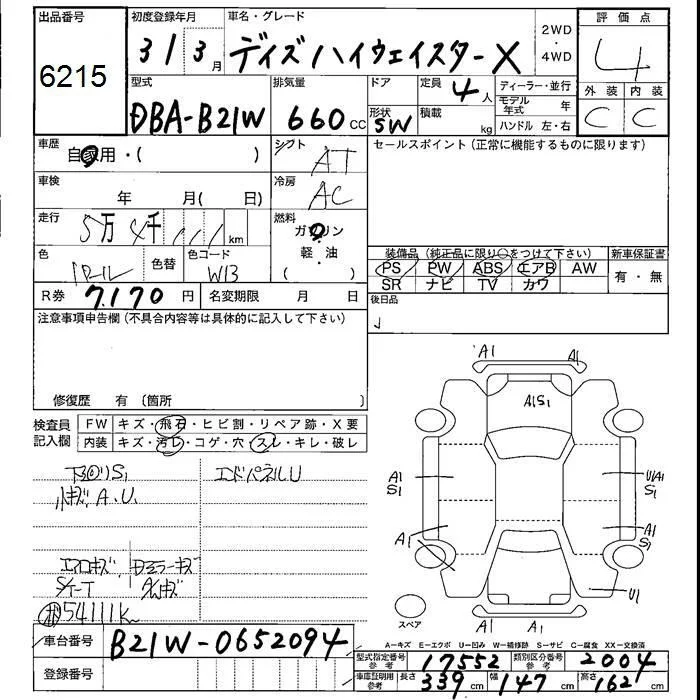 出品番号
6215
初度登録年月
31 3月
車名・グレード
デイズ ハイウェイスターX
2WD
・
4WD
評価点
4
外装 内装
C C
型式
DBA-B21W
排気量
660 cc
ドア
形状
5W
定員
4人
積載
kg
ディーラー・並行
モデル年式 年
ハンドル 左・右
車歴
自家用・( )
シフト
AT
セールスポイント(正常に機能するものに限ります)
車検
年 月( 日)
冷房
AC
走行
5万 4千 111 km
燃料
ガソリン
軽・油
( ・ )
色
パール
色替
色コード
W13
R券
7,170 円
名変期限 月 日
装備品(純正品に限り○をつけて下さい)
PS PW ABS エアB AW
SR ナビ TV カワ
新車保証書
有・無
後日品
注意事項申告欄(不具合内容等は具体的に記入して下さい)
修復歴 有(箇所
検査員
記入欄
FW キズ・飛石・ヒビ割・リペア跡・X要
内装 キズ・汚レ・コゲ・穴・スレ・キレ・破レ
下回りS1
小キズ A.U.
エアロキズ
S/T-T
ドアミラーキズ
54111K
エンドパネルU
A1
A1
A1S1
A1
S1
U1A1
S1
A1
A1
S1
U1
A1
A1
スペア
A=キズ E=エクボ U=凹み W=補修跡 S=サビ C=腐食 XX=交換済
車台番号
B21W-0652094
登録番号
型式指定番号
参考
17552
類別区分番号
参考
2004
車庫証明用
参考
長さ 339cm 幅 147cm 高さ 162cm